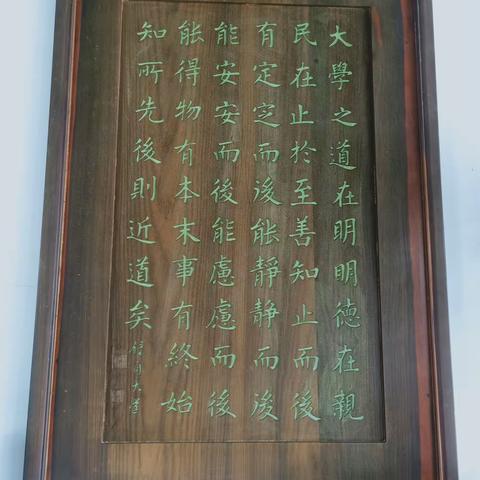 大學之道在明明德在親
民在止於至善知止而後
有定定而後能靜靜而後
能安安而後能慮慮而後
能得物有本末事有終始
知所先後則近道矣